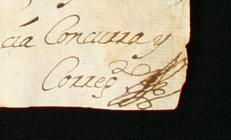 cia Concurra y
Correg.r